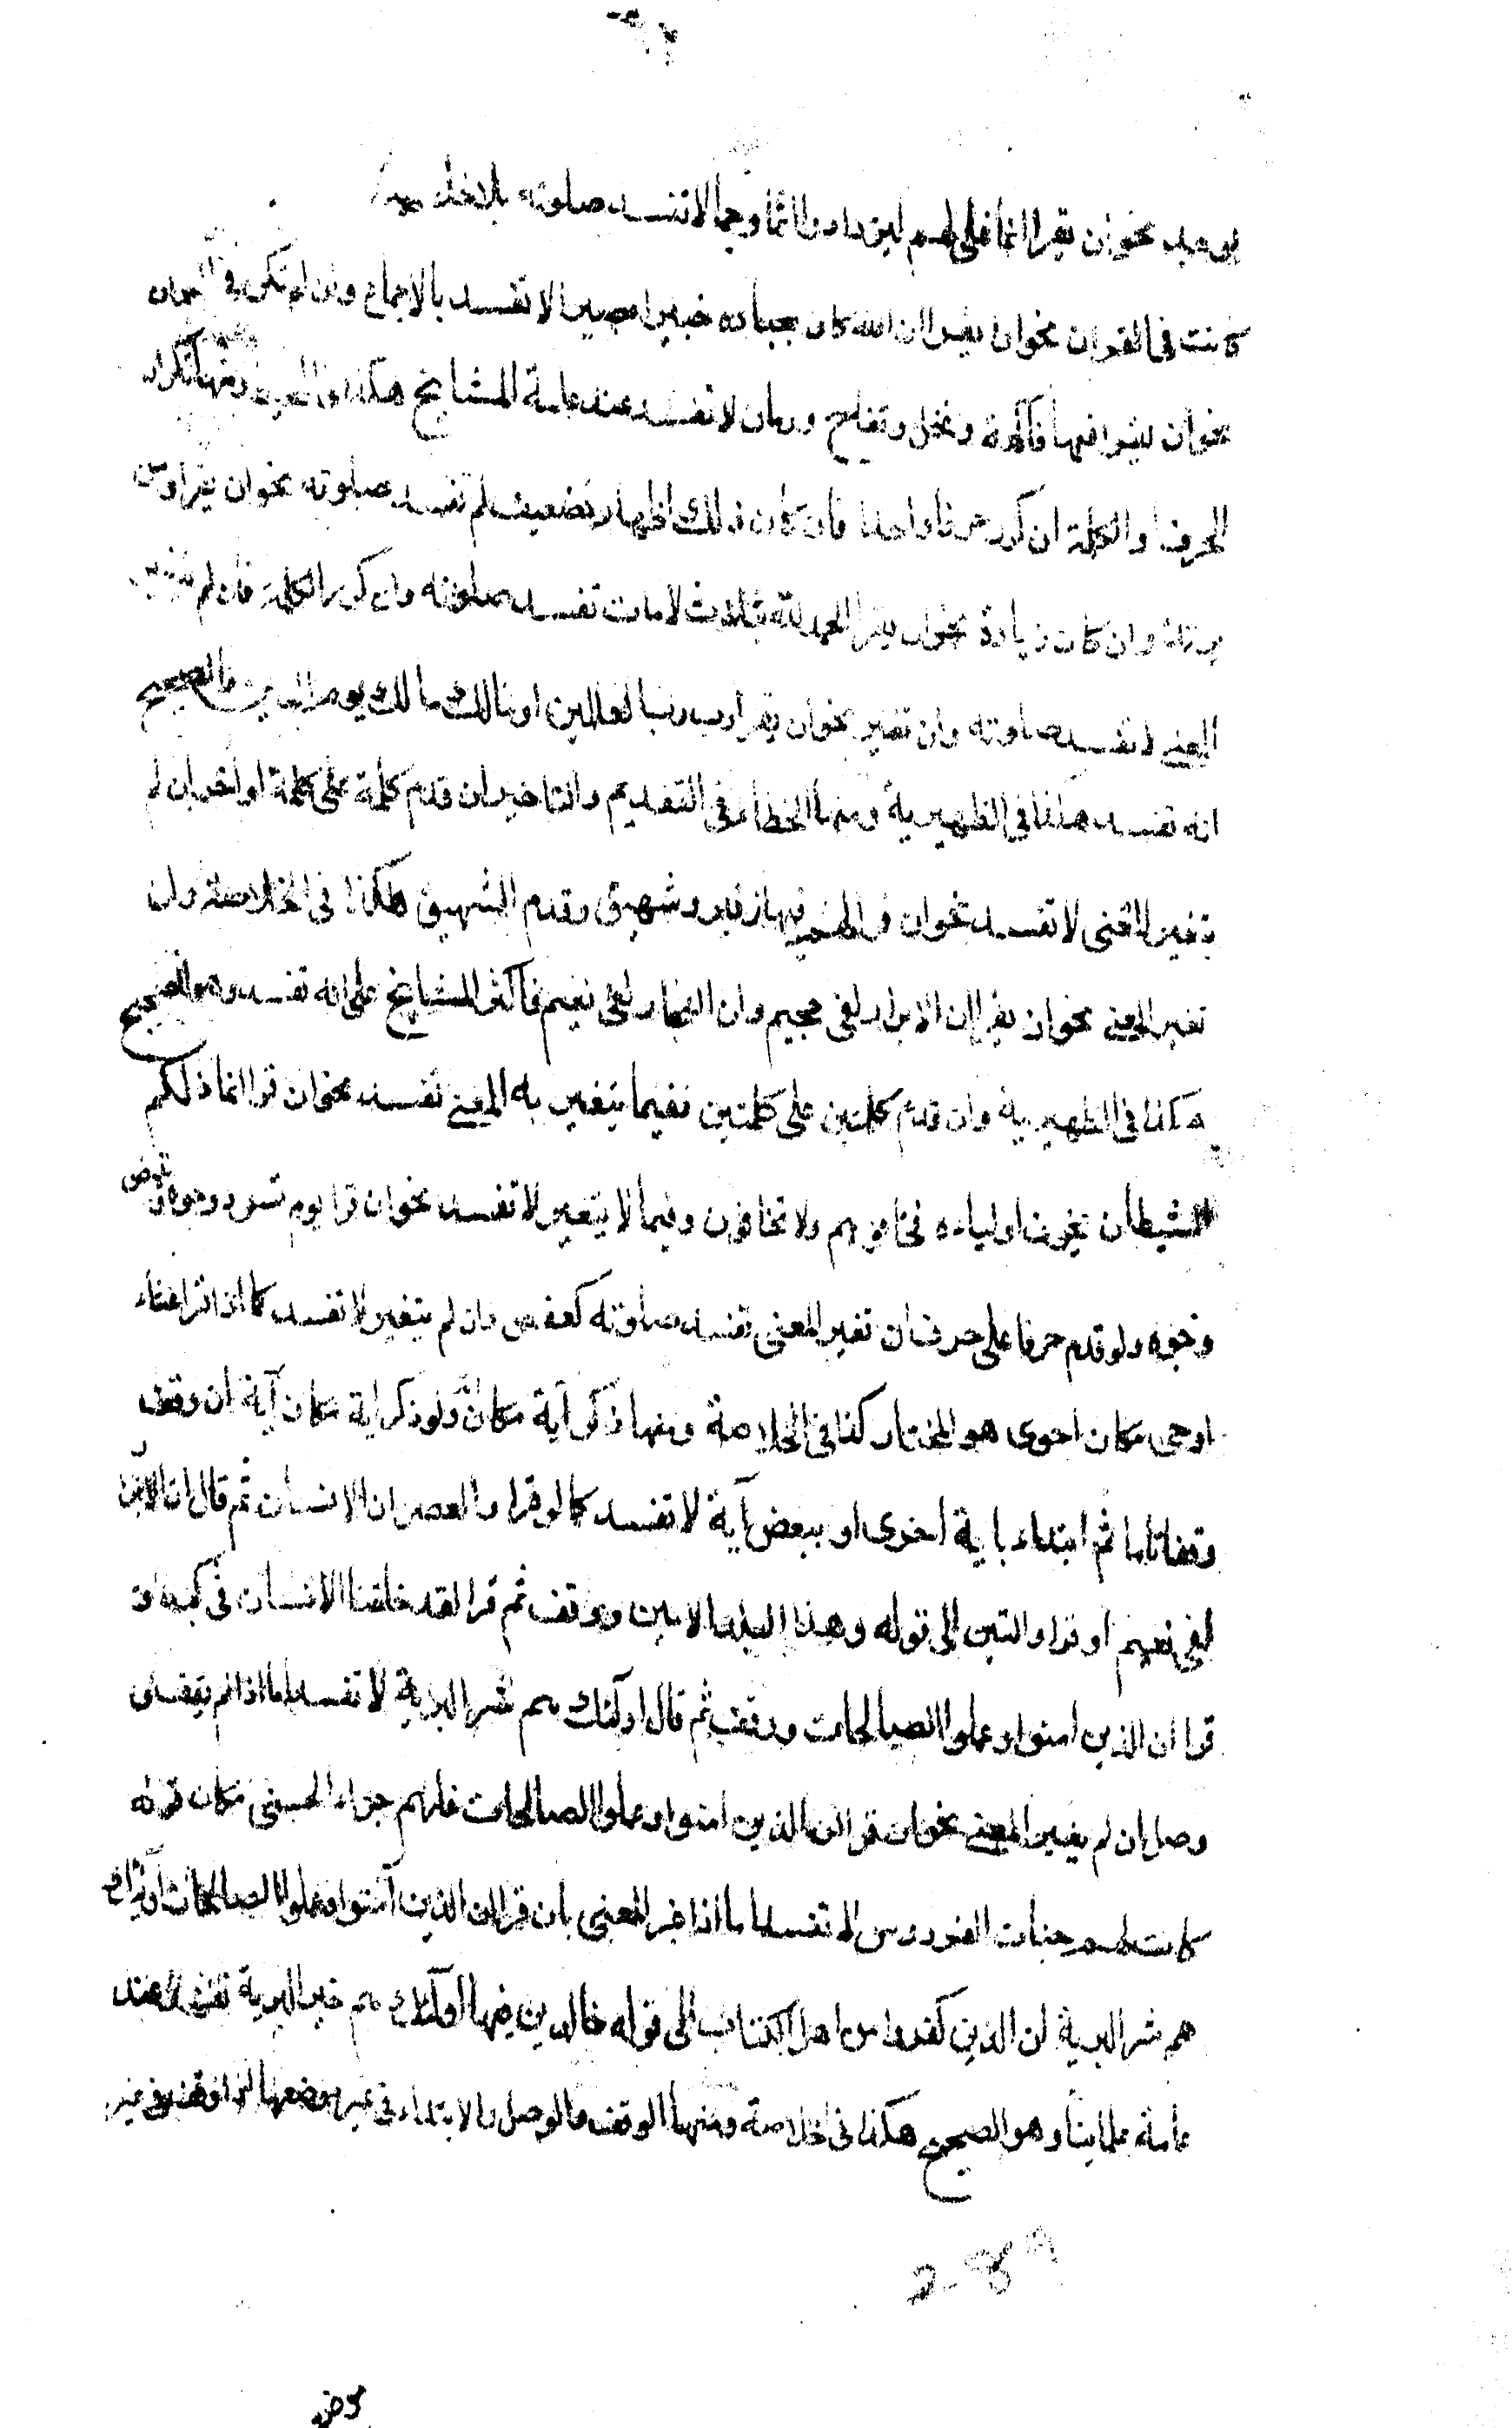 يوجد نحو ان يقرا انما نملي لهم ليزدادوا اثما وجمالا تفسد صلوته بلا خلاف
كانت في القران نحو ان يقرا ان الله كان بعباده خبيرا بصيرا لا تفسد بالاجماع وان لم تكن في القران
نحو ان يقرا فيها فاكهة ونخل وتفاح ورمان لا تفسد عند عامة المشايخ هكذا في المحيط ومنها تكرار
الحرف او الكلمة ان كرر حرفا واحدا فان كان ذلك اظهار تضعيف لم تفسد صلوته نحو ان يقرا ومن
يرتدد وان كان زيادة نحو ان يقرا الحمد لله بثلاث لامات تفسد صلوته وان كرر الكلمة فان لم يتغير
المعنى لا تفسد صلوته وان تغير نحو ان يقرا رب رب العالمين او مالك مالك يوم الدين فالصحيح
انه تفسد هكذا في الظهيرية ومنها الخطاء في التقديم والتاخير ان قدم كلمة على كلمة او اخر ان لم
يتغير المعنى لا تفسد نحو ان قرا لهم فيها زفير وشهيق وقدم الشهيق هكذا في الخلاصة وان
تغير المعنى نحو ان يقرا ان الابرار لفي جحيم وان الفجار لفي نعيم فاكثر المشايخ على انه تفسد وهو الصحيح
هكذا في الظهيرية وان قدم كلمتين على كلمتين ففيما يتغير به المعنى تفسد نحو ان قرا انما ذلكم
الشيطان يخوف اولياءه فخافوهم ولا تخافون وفيما لا يتغير لا تفسد نحو ان قرا يوم تسود وجوه وتبيض
وجوه ولو قدم حرفا على حرف ان تغير المعنى تفسد صلوته كعفص وان لم يتغير لا تفسد كما اذا قرا غثاء
اوحى مكان احوى هو المختار كذا في الخلاصة ومنها ذكر آية مكان ولو ذكر اية مكان آية ان وقف
وقفا تاما ثم ابتداء باية اخرى او ببعض آية لا تفسد كما لو قرا والعصر ان الانسان ثم قال ان الابرار
لفي نعيم او قرا والتين الى قوله وهذا البلد الامين ووقف ثم قرا لقد خلقنا الانسان في كبد او
قرا ان الذين امنوا وعملوا الصالحات ووقف ثم قال اولئك هم شر البرية لا تفسد اما اذا لم يقف
وصل ان لم يغير المعنى نحو ان قرا ان الذين امنوا وعملوا الصالحات فلهم جزاء الحسنى مكان قوله
كانت لهم جنات الفردوس لا تفسد اما اذا غير المعنى بان قرا ان الذين آمنوا وعملوا الصالحات اولئك
هم شر البرية ان الذين كفروا من اهل الكتاب الى قوله خالدين فيها اولئك هم خير البرية تفسد عند
عامة علمائنا وهو الصحيح هكذا في الخلاصة ومنها الوقف والوصل والابتداء في غير موضعها اذا وقف في غير